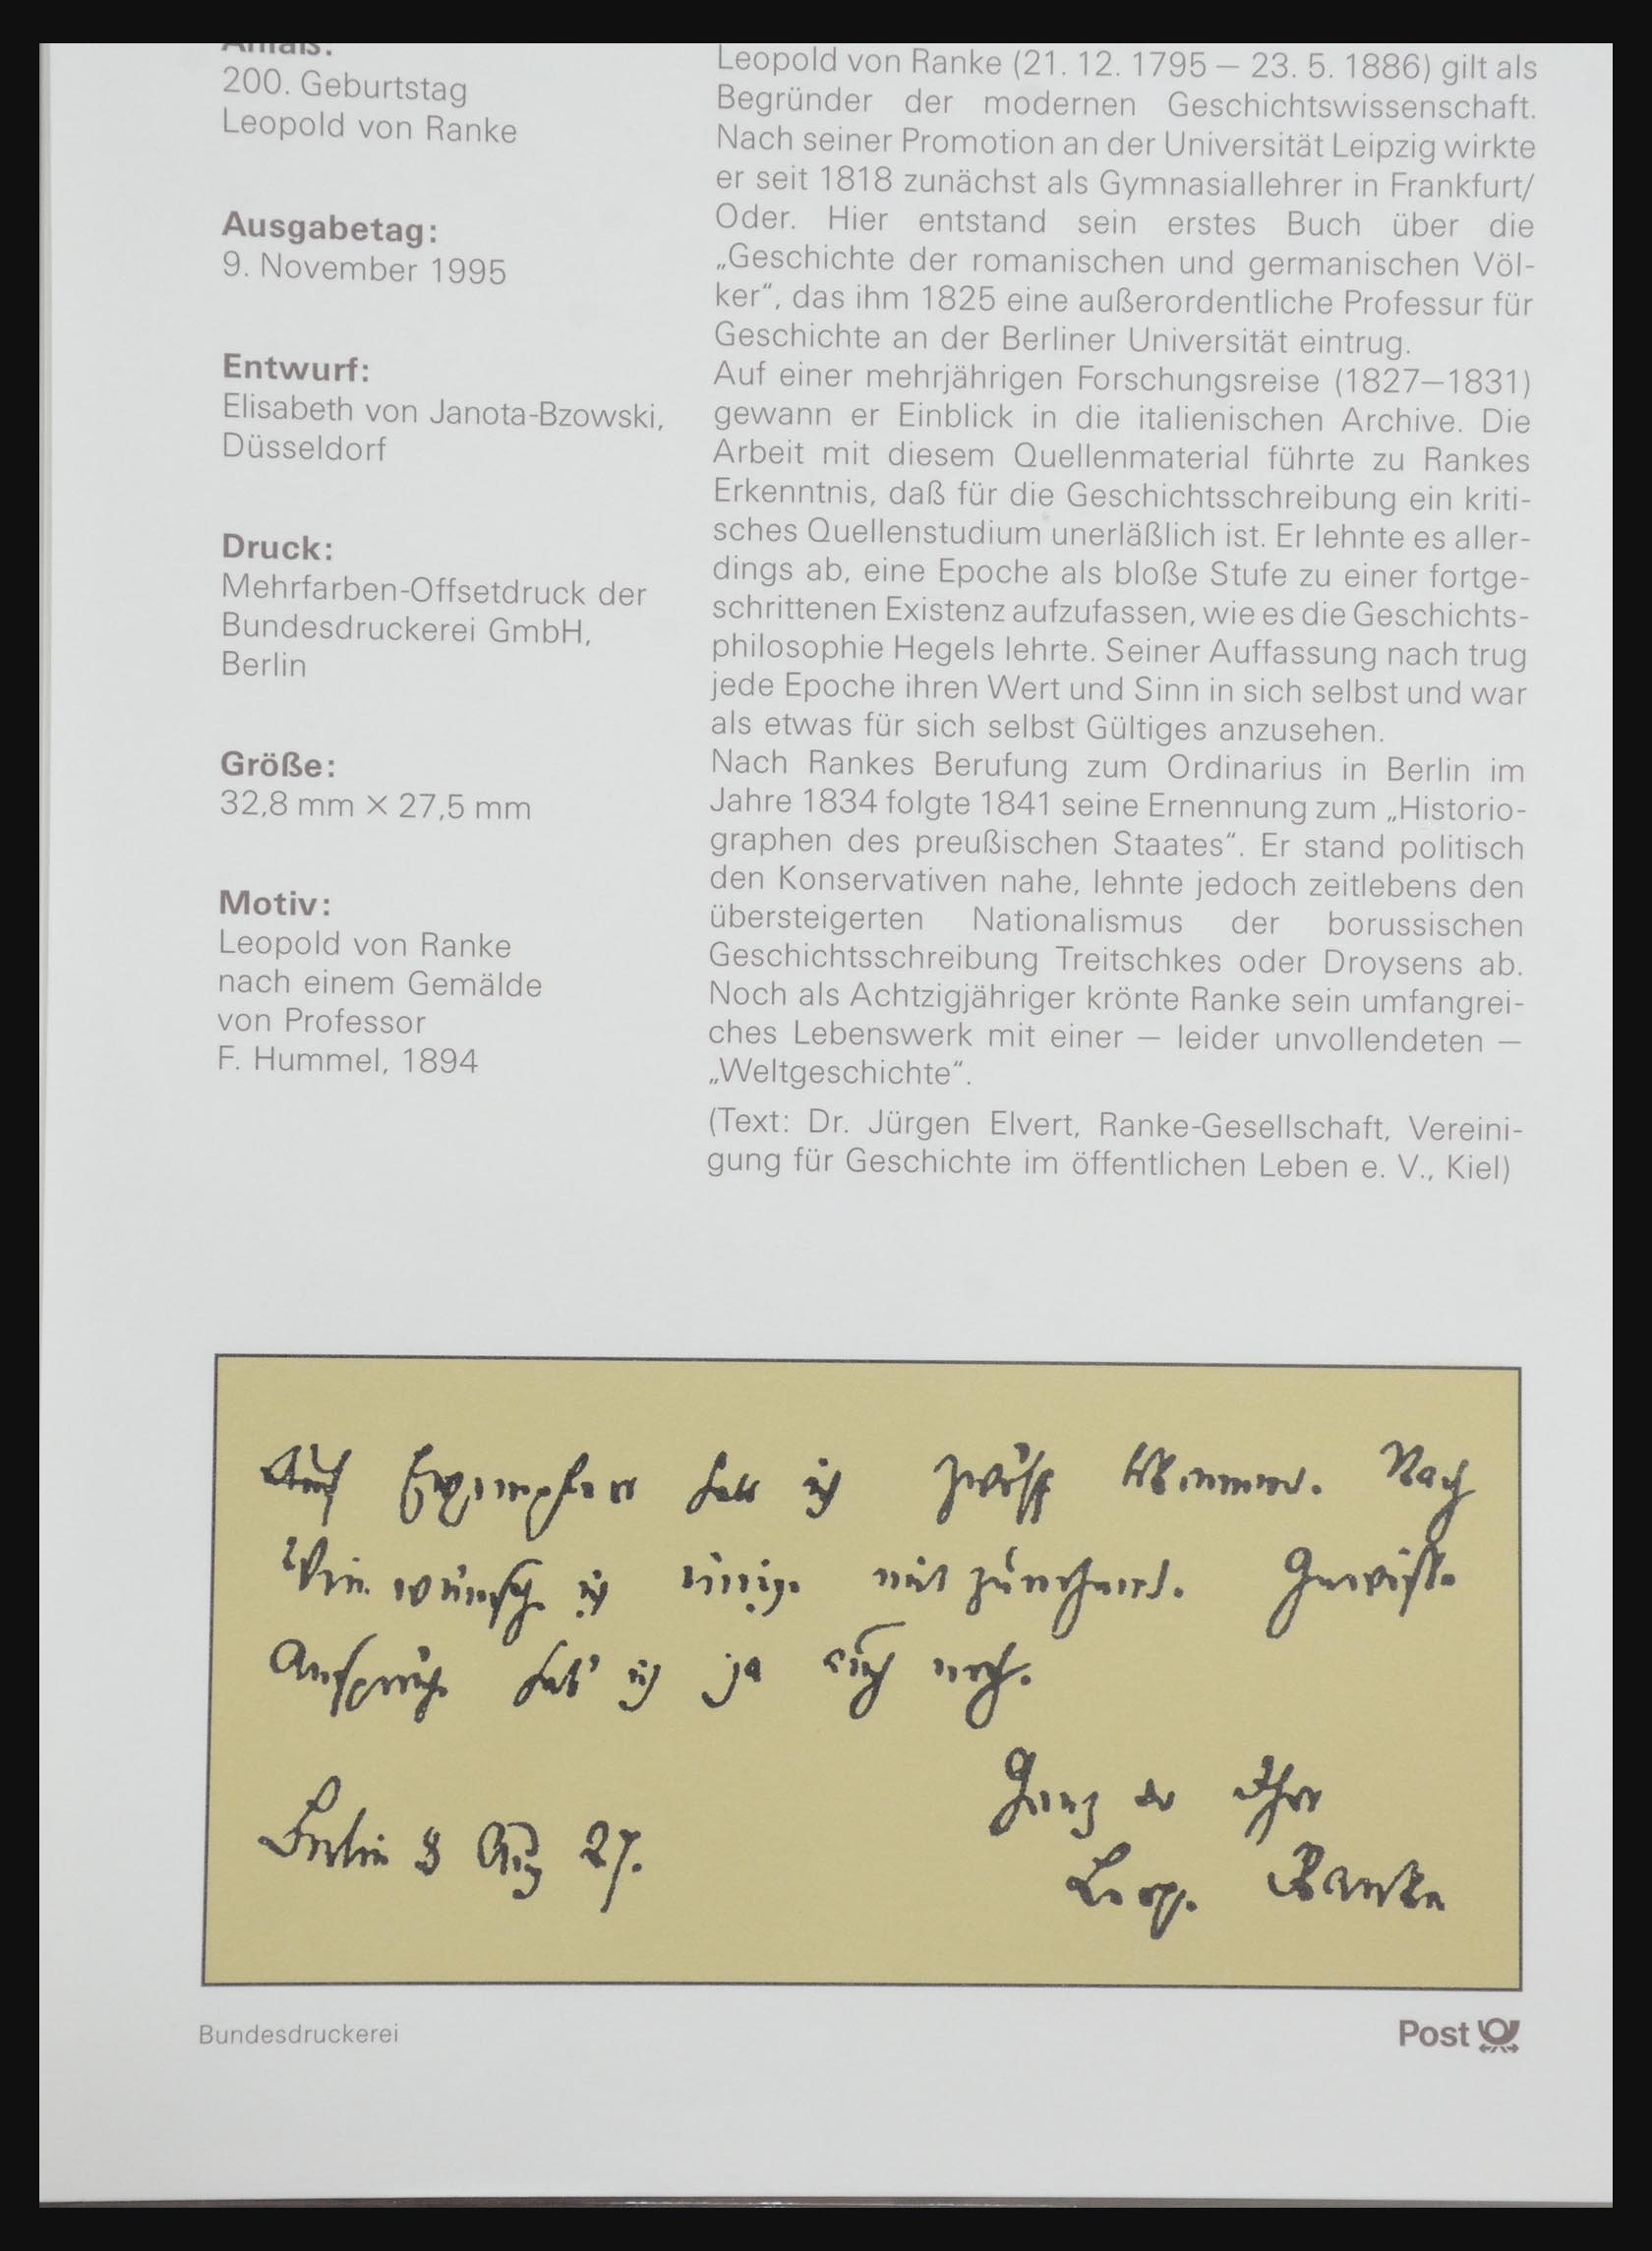 Anlaß:
200. Geburtstag
Leopold von Ranke
Ausgabetag:
9. November 1995
Entwurf:
Elisabeth von Janota-Bzowski,
Düsseldorf
Druck:
Mehrfarben-Offsetdruck der
Bundesdruckerei GmbH,
Berlin
Größe:
32,8 mm × 27,5 mm
Motiv:
Leopold von Ranke
nach einem Gemälde
von Professor
F. Hummel, 1894
Leopold von Ranke (21. 12. 1795 – 23. 5. 1886) gilt als
Begründer der modernen Geschichtswissenschaft.
Nach seiner Promotion an der Universität Leipzig wirkte
er seit 1818 zunächst als Gymnasiallehrer in Frankfurt/
Oder. Hier entstand sein erstes Buch über die
„Geschichte der romanischen und germanischen Völ-
ker“, das ihm 1825 eine außerordentliche Professur für
Geschichte an der Berliner Universität eintrug.
Auf einer mehrjährigen Forschungsreise (1827–1831)
gewann er Einblick in die italienischen Archive. Die
Arbeit mit diesem Quellenmaterial führte zu Rankes
Erkenntnis, daß für die Geschichtsschreibung ein kriti-
sches Quellenstudium unerläßlich ist. Er lehnte es aller-
dings ab, eine Epoche als bloße Stufe zu einer fortge-
schrittenen Existenz aufzufassen, wie es die Geschichts-
philosophie Hegels lehrte. Seiner Auffassung nach trug
jede Epoche ihren Wert und Sinn in sich selbst und war
als etwas für sich selbst Gültiges anzusehen.
Nach Rankes Berufung zum Ordinarius in Berlin im
Jahre 1834 folgte 1841 seine Ernennung zum „Historio-
graphen des preußischen Staates“. Er stand politisch
den Konservativen nahe, lehnte jedoch zeitlebens den
übersteigerten Nationalismus der borussischen
Geschichtsschreibung Treitschkes oder Droysens ab.
Noch als Achtzigjähriger krönte Ranke sein umfangrei-
ches Lebenswerk mit einer – leider unvollendeten –
„Weltgeschichte“.
(Text: Dr. Jürgen Elvert, Ranke-Gesellschaft, Vereini-
gung für Geschichte im öffentlichen Leben e. V., Kiel)
Auf Exemplare habe ich zwölf bekommen. Nach
Wien wünsche ich einige mit zu nehmen. Gewisse
Ansprüche hab' ich ja auch noch.
Ganz der Ihre
Berlin 8 Aug 27.
Leop. Ranke
Bundesdruckerei
Post